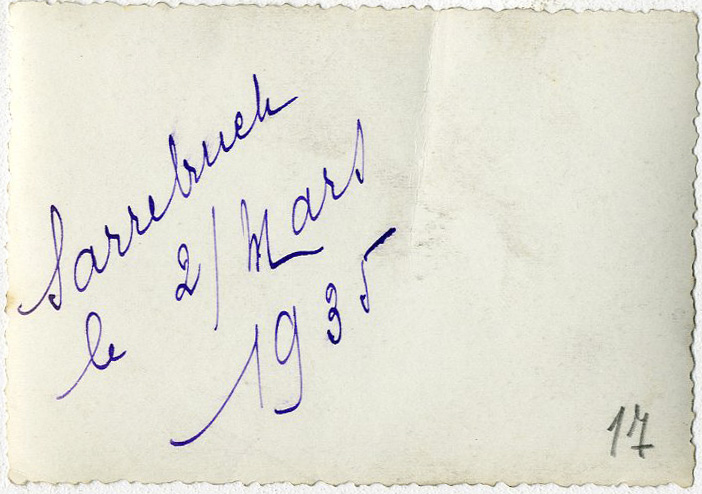 Sarrebruck
le 2/Mars
1935
17